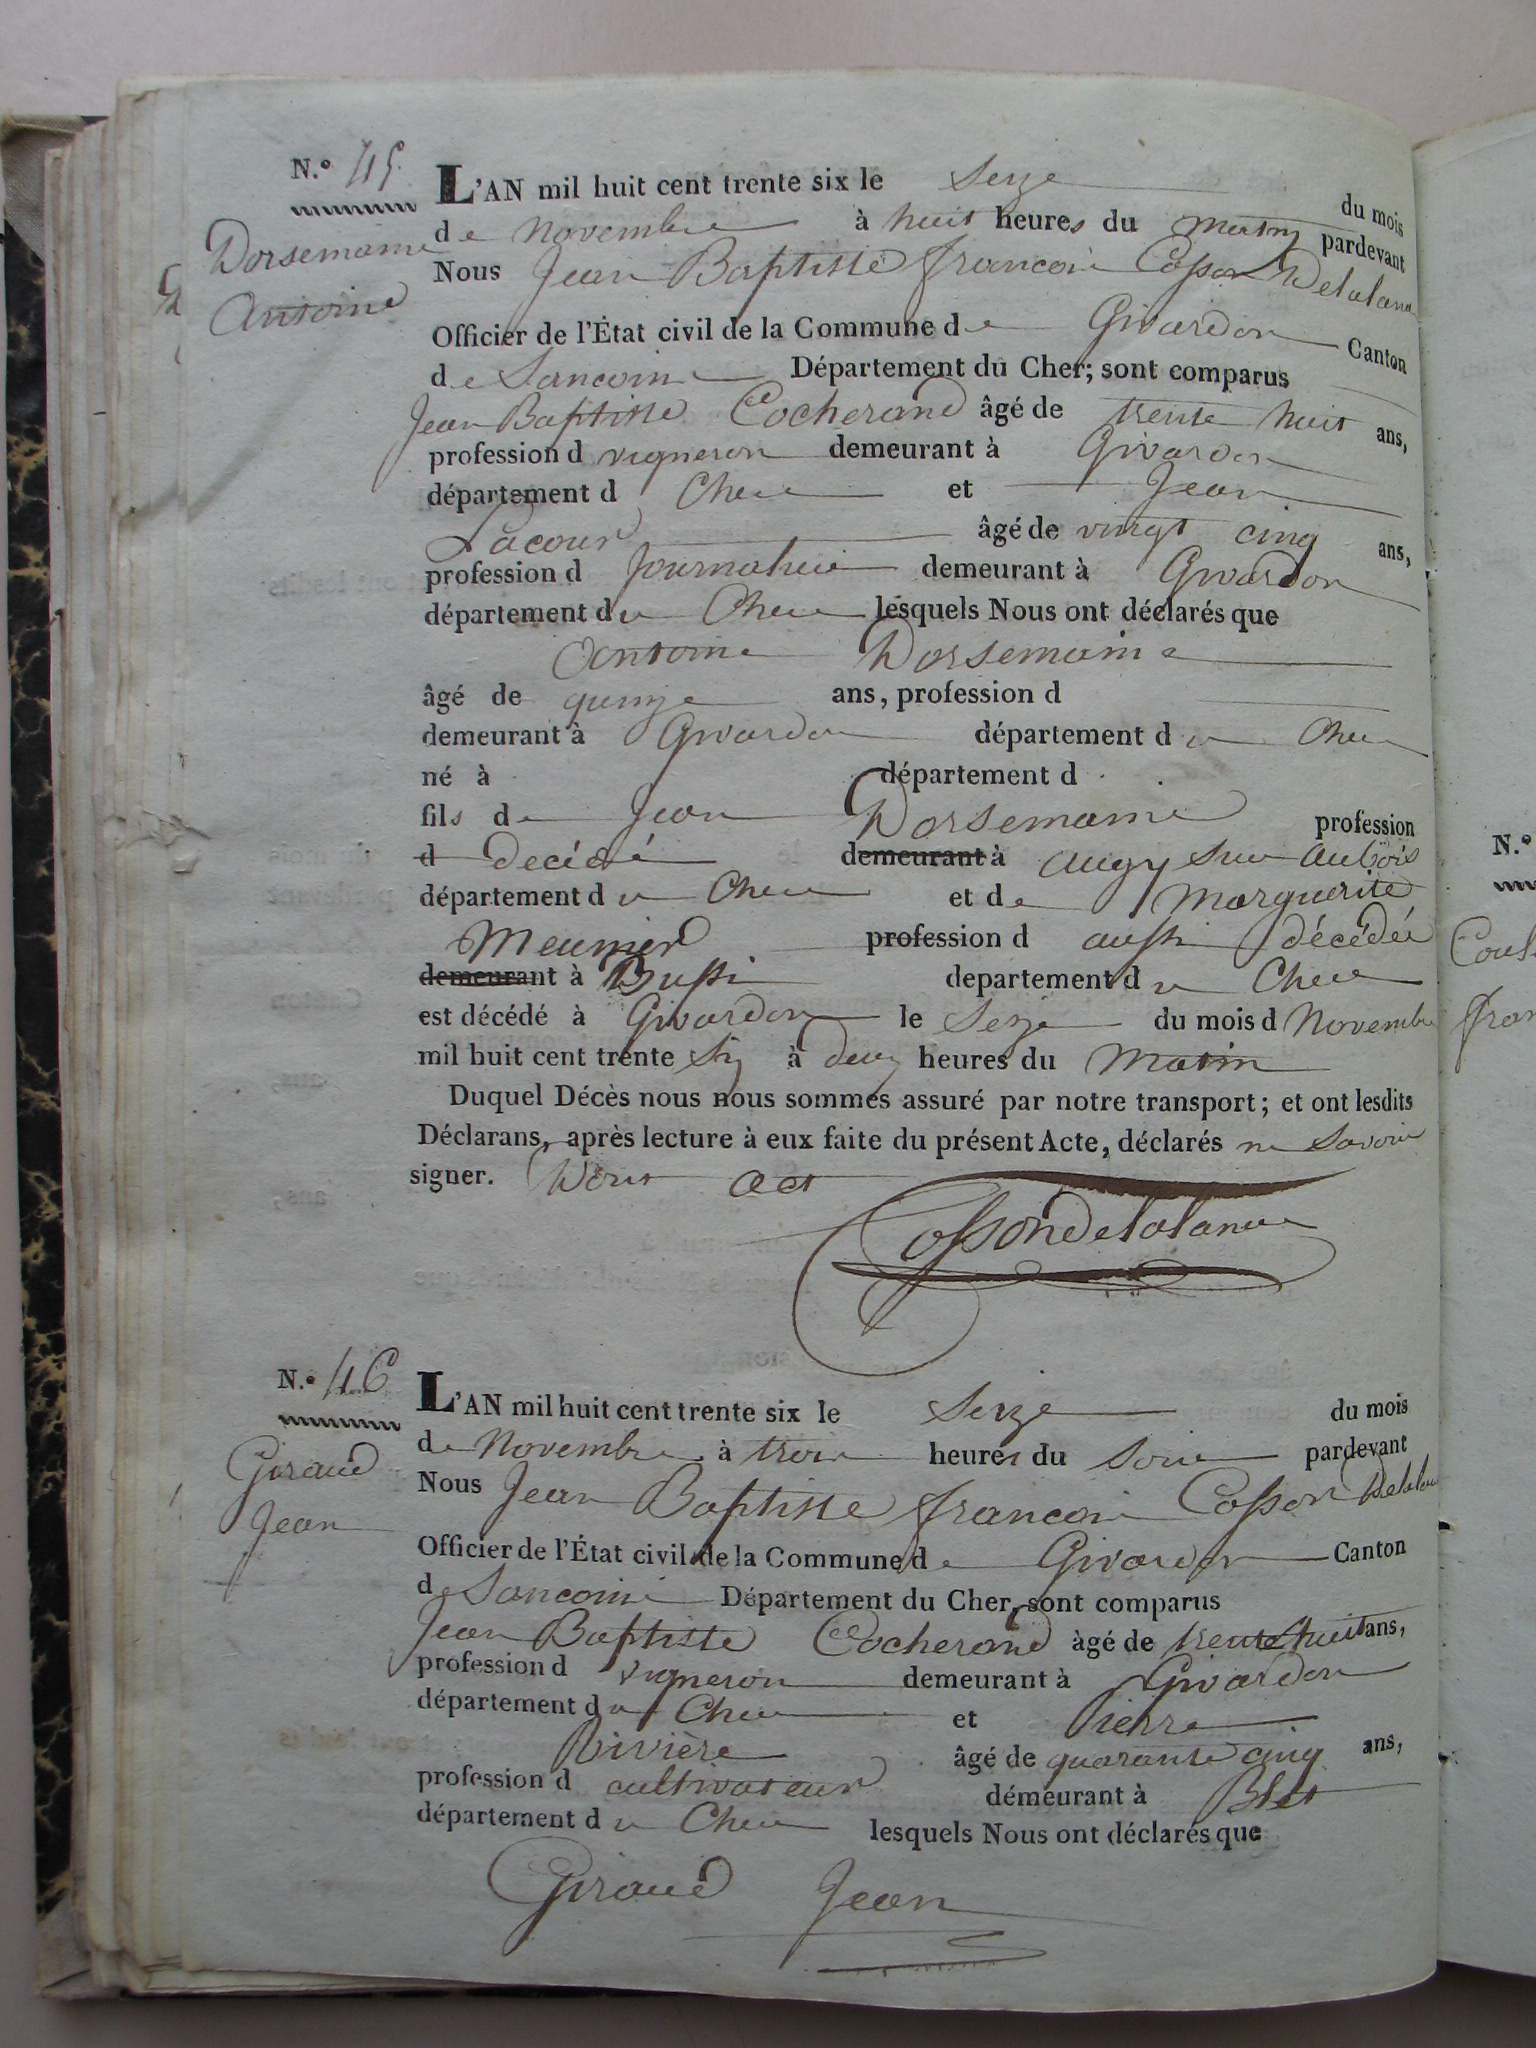 N.º 45
Dorsemaine
Antoine
L'AN mil huit cent trente six le Seize du mois
de Novembre à huit heures du matin pardevant
Nous Jean Baptiste François Cosson Delalande
Officier de l'État civil de la Commune de Givardon Canton
de Sancoins Département du Cher; sont comparus
Jean Baptiste Cocherand âgé de trente huit ans,
profession d vigneron demeurant à Givardon
département d Cher et Jean
Lacour âgé de vingt cinq ans,
profession d journalier demeurant à Givardon
département du Cher lesquels Nous ont déclarés que
Antoine Dorsemaine
âgé de quinze ans, profession d
demeurant à Givardon département du Cher
né à département d
fils de Jean Dorsemaine profession
d decédé demeurant à augy sur aubois
département du Cher et de Marguerite
Meunier profession d aussi décédée
demeurant à Bussi departement du Cher
est décédé à Givardon le Seize du mois d Novembre
mil huit cent trente six à deux heures du Matin
Duquel Décès nous nous sommes assuré par notre transport; et ont lesdits
Déclarans, après lecture à eux faite du présent Acte, déclarés ne savoir
signer. Dont act
Cosson Delalande
N.º 46
Giraud
Jean
L'AN mil huit cent trente six le Seize du mois
de Novembre à trois heures du soir pardevant
Nous Jean Baptiste François Cosson Delalande
Officier de l'État civil de la Commune de Givardon Canton
de Sancoins Département du Cher, sont comparus
Jean Baptiste Cocherand âgé de trente huit ans,
profession d vigneron demeurant à Givardon
département du Cher et Pierre
Rivière âgé de quarante cinq ans,
profession d cultivateur démeurant à Blet
département du Cher lesquels Nous ont déclarés que
Giraud Jean
N.º